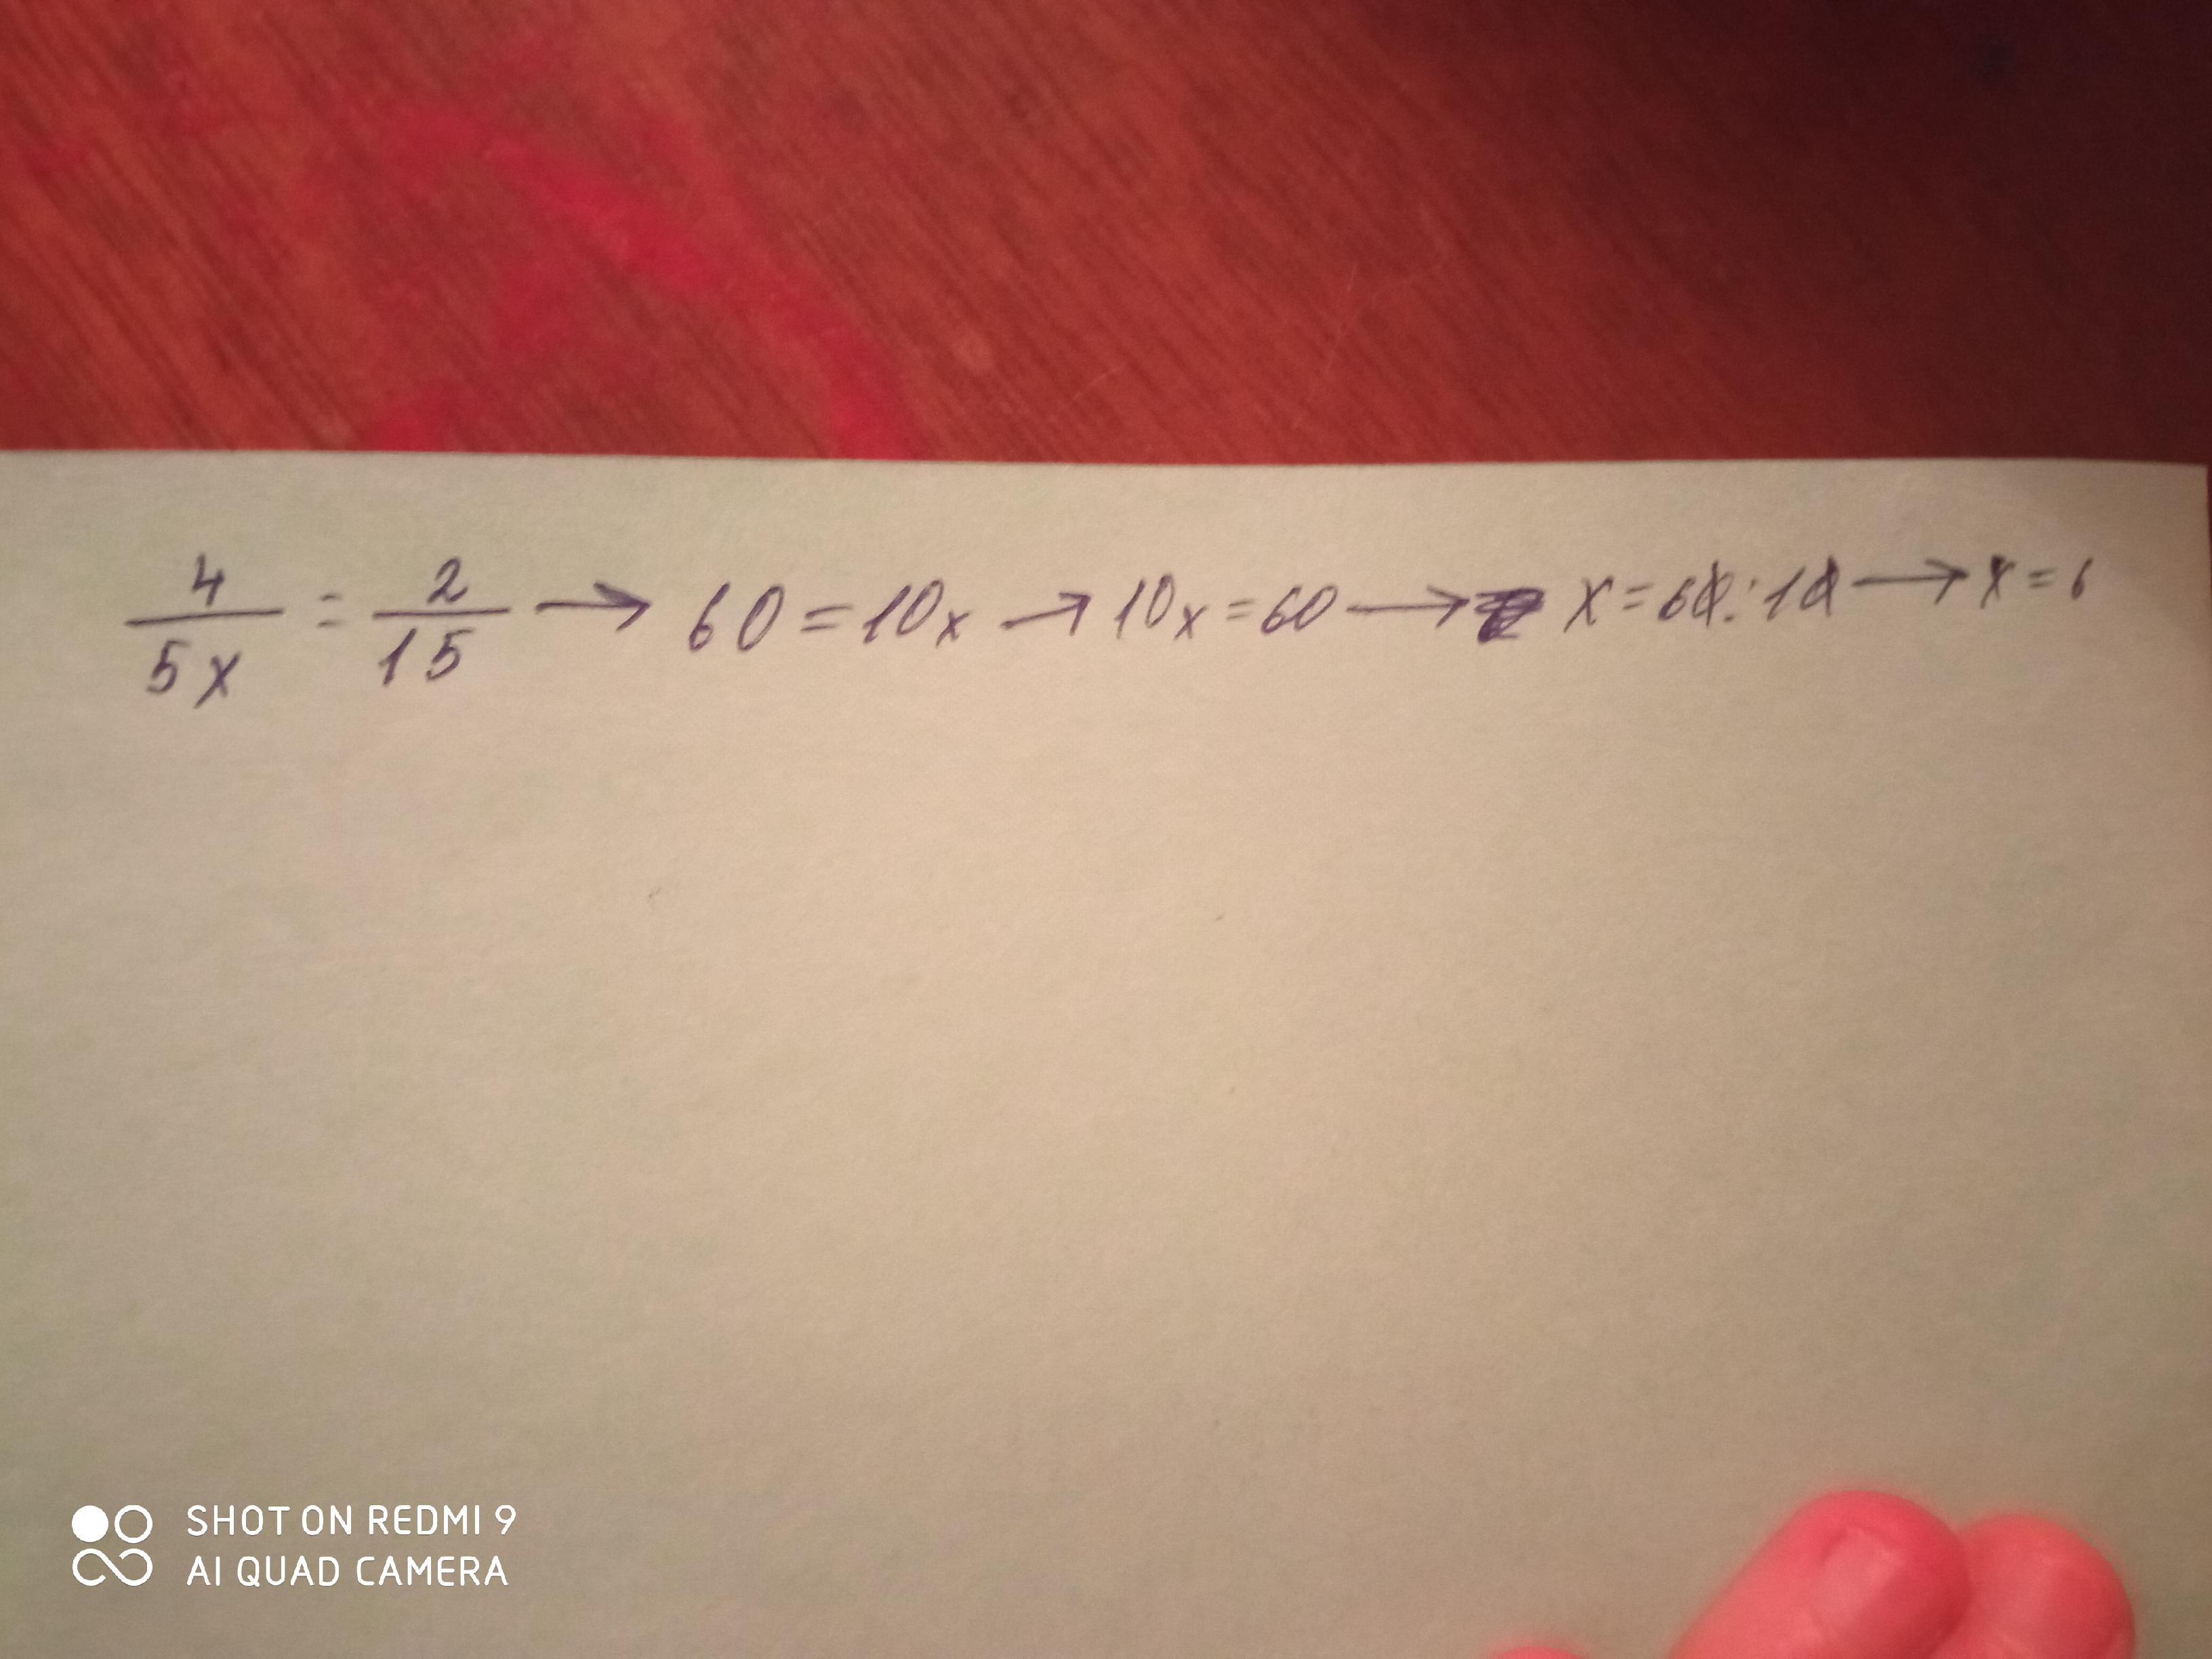 4/5x = 2/15 → 60 = 10x → 10x = 60 → x = 60 : 10 → x = 6
SHOT ON REDMI 9
AI QUAD CAMERA